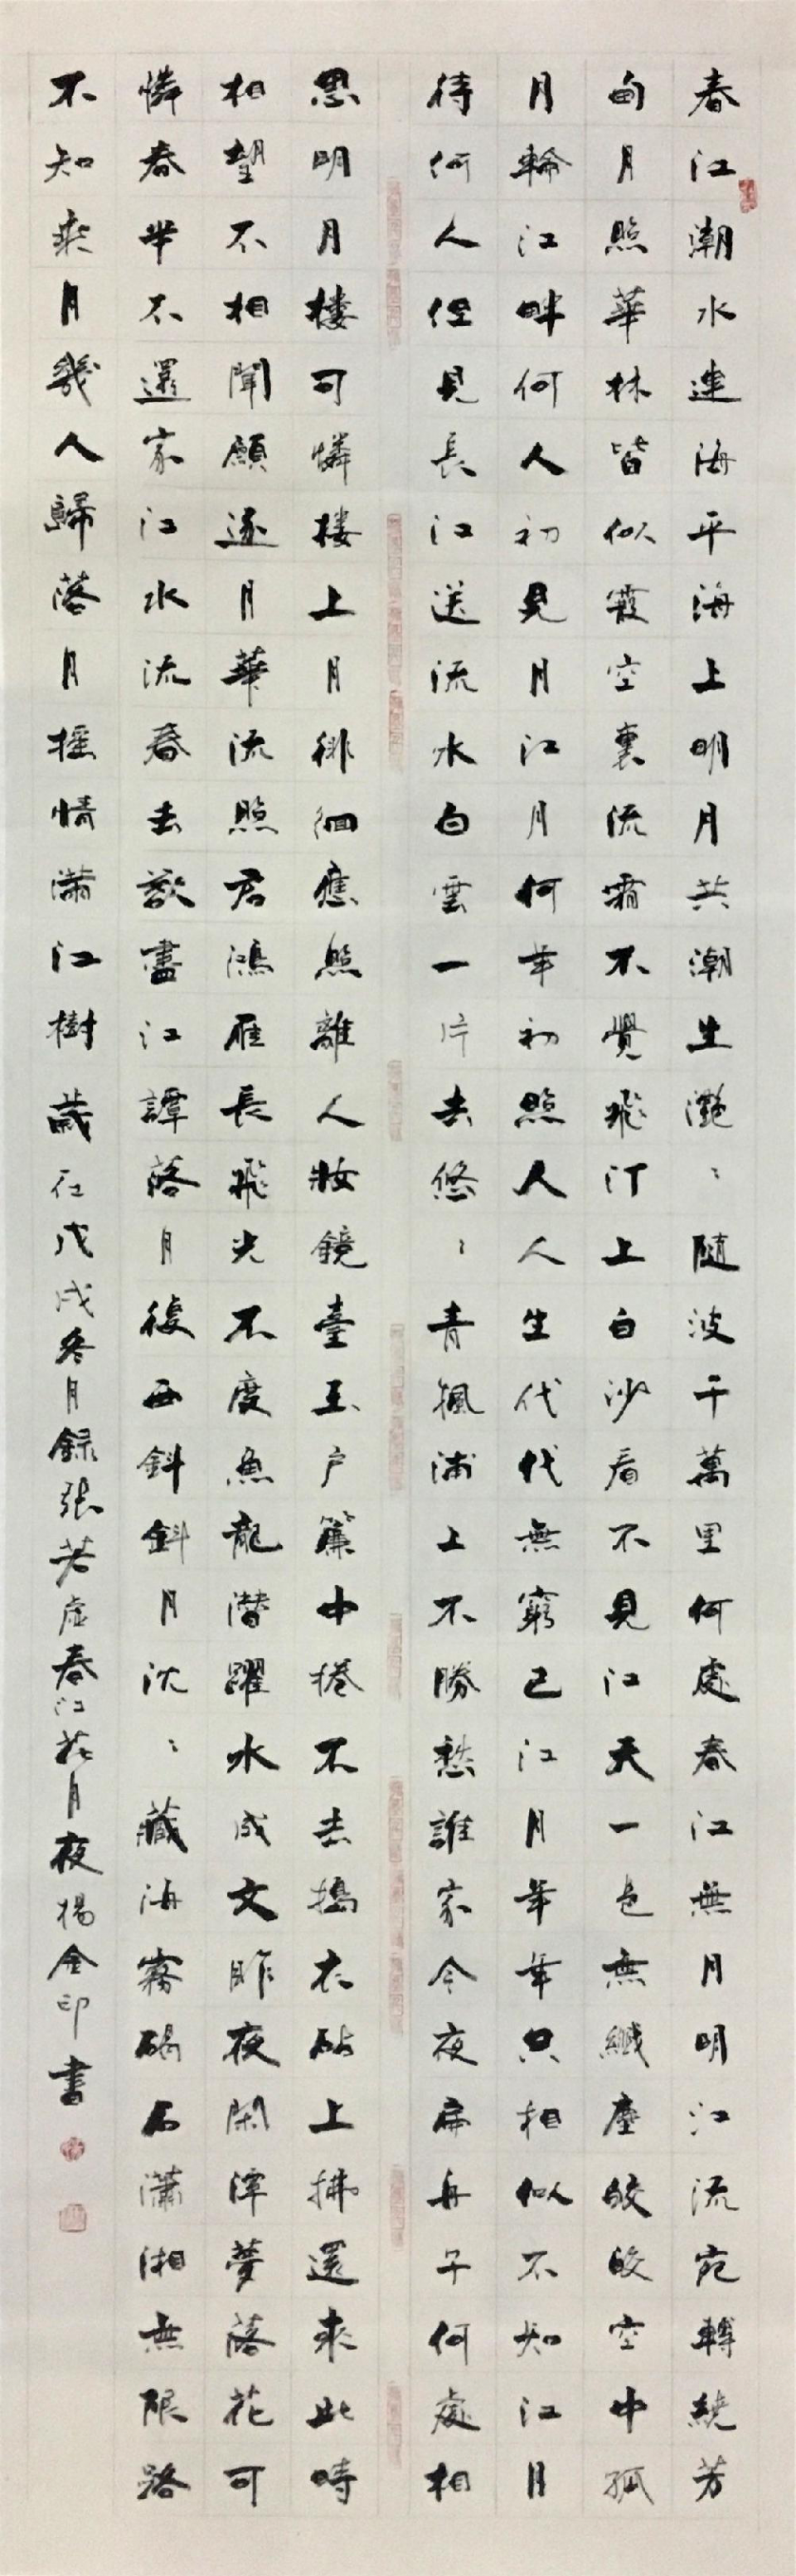 春江潮水連海平海上明月共潮生灔〻隨波千萬里何處春江無月明江流宛轉繞芳
甸月照華林皆似霰空裏流霜不覺飛汀上白沙看不見江天一色無纖塵皎皎空中孤
月輪江畔何人初見月江月何年初照人人生代代無窮已江月年年只相似不知江月
待何人但見長江送流水白雲一片去悠〻青楓浦上不勝愁誰家今夜扁舟子何處相
思明月樓可憐樓上月徘徊應照離人妝鏡臺玉戶簾中捲不去搗衣砧上拂還來此時
相望不相聞願逐月華流照君鴻雁長飛光不度魚龍潛躍水成文昨夜閑潭夢落花可
憐春半不還家江水流春去欲盡江潭落月復西斜斜月沈〻藏海霧碣石瀟湘無限路
不知乘月幾人歸落月搖情滿江樹歲在戊戌冬月錄張若虛春江花月夜楊金印書